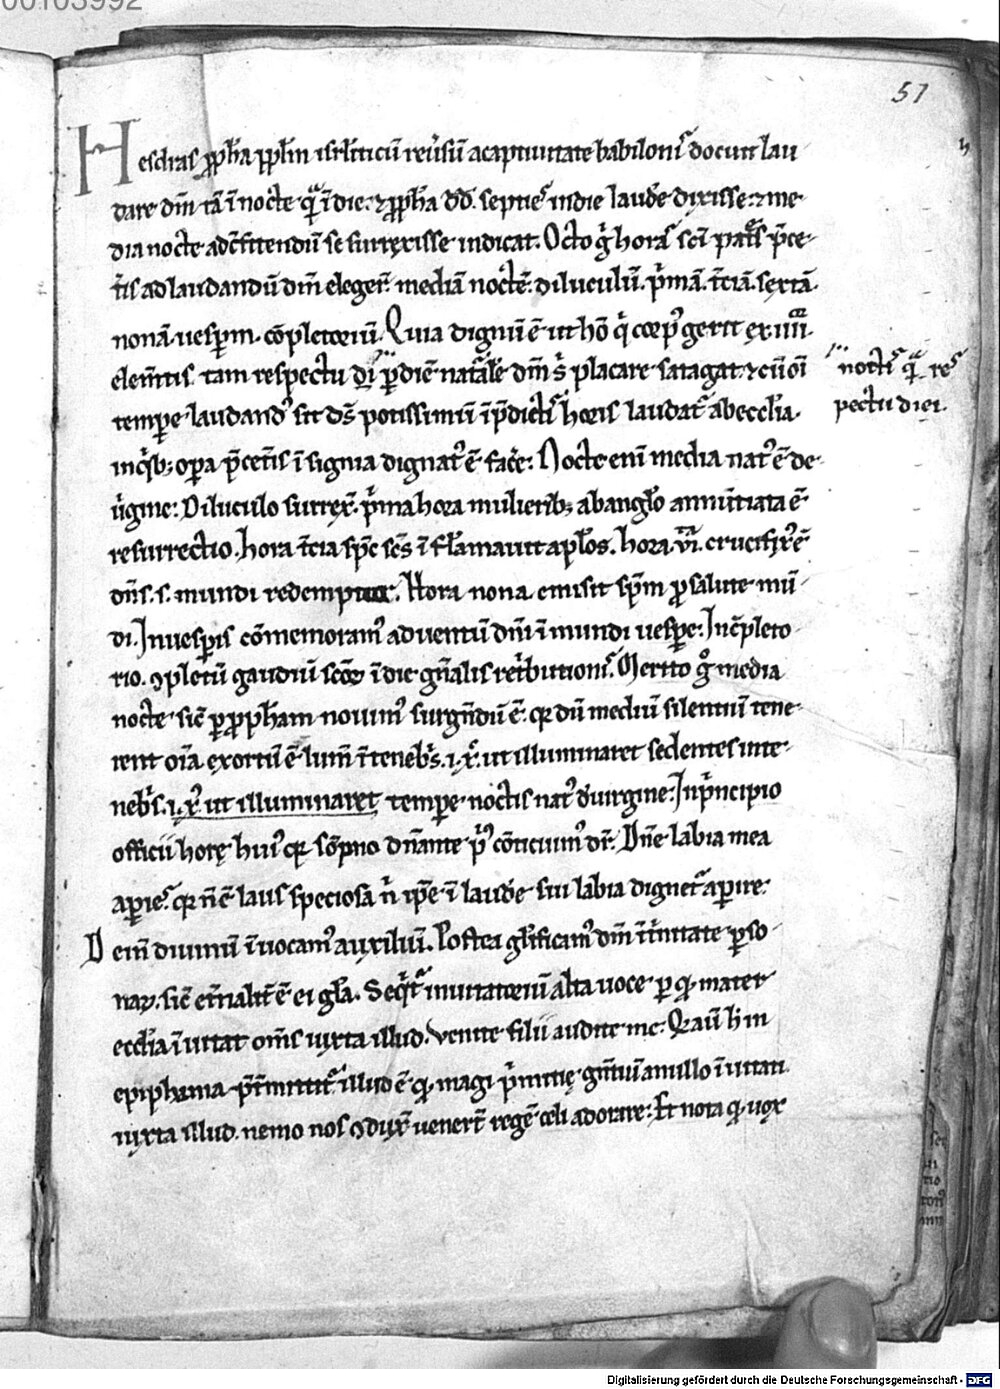 00103992
57
Hesdras ꝓph̄a ppl̄m isrl̄iticū reu̓sū a captiuitate babiloniſ docuit lau
dare dm̄ tā ī nocte quā ī die. & ꝓph̄a dd̄. septieſ in die laudē dixisse. & me
dia nocte ad cōfitendū se surrexisse indicat. Octo g̊ horas sc̄i patres p̄ce
tis ad laudandū dm̄ eleger̄. mediā noctē. diluculū. p̓mā. tc̄iā. sextā.
nonā. uesꝑm. cōpletoriū. Quia dignū ē ut hō q̓ corp᷒ gerit ex .iiii.
elem̄tis. tam respectu di᷒ ꝑ diē natalē dm̄ s̓ placare satagat. & cū oī
temꝑe laudand᷒ sit ds̄ potissimū ī p̄dictis horis laudat᷒ ab eccl̄ia.
in qⁱb; oꝑa p̄cet̄is īsignia dignat᷒ ē fac̄e. Nocte eni media nat᷒ ē de
uirgine. Diluculo surrex̄. p̓ma hora mulierib; ab angl̄o annūtiata ē
resurrectio. hora tc̄ia sp̄c sc̄s īflāmauit apl̄os. hora .vi. crucifix᷒ ē
dn̄s .s. mundi redemptor. Hora nona emisit sp̄m ꝓ salute mū
di. In uesꝑis cōmemoram᷒ aduentū dn̄i ī mundi uesꝑe. In cōpleto
rio. ꝯpletū gaudiū sc̄oꝝ ī die gn̄alis ret̓butioniſ. Merito g̊ media
nocte sic̄ ꝑ ꝓph̄am nouim᷒ surgn̄dū ē. qꝛ dū mediū silentiū tene
rent oīa exortū ē lum̄ ī tenebris .i. xp̄. ut illuminaret sedentes in te
nebris .i. xp̄. ut illuminaret temꝑe noctis nat᷒ d̓ uirgine. In p̓ncipio
officii horę hui᷒ qꝛ sōpno dn̄ante p̓᷒ cōticuim᷒ dr̄. Dn̄e labia mea
aꝑieſ. qꝛ n̄ ē laus speciosa n̓ ipse ī laudē sui labia dignet᷒ aꝑire.
Dein̄ diuinū īuocam᷒ auxiliū. Postea gl̄ificam᷒ dm̄ ī t̓nitate ꝑso
naꝝ. sic̄ et̄nalit̄ ē ei gl̄a. Seqt᷒ inuitatoriū alta uoce ꝑ q̊ mater
eccl̄ia īuitat om̄s iuxta illud. Venite filii audite me. Q aū h̓ in
epiphania p̄t̄mittit᷒ illud ē q̊ magi p̓mitię gn̄tiū a nullo īuitati
iuxta illud. nemo nos ꝯdux̄ uenert̄ regē celi adorare. Et nota q̊ uox
noctis quā res
pectu diei.
Digitalisierung gefördert durch die Deutsche Forschungsgemeinschaft - DFG